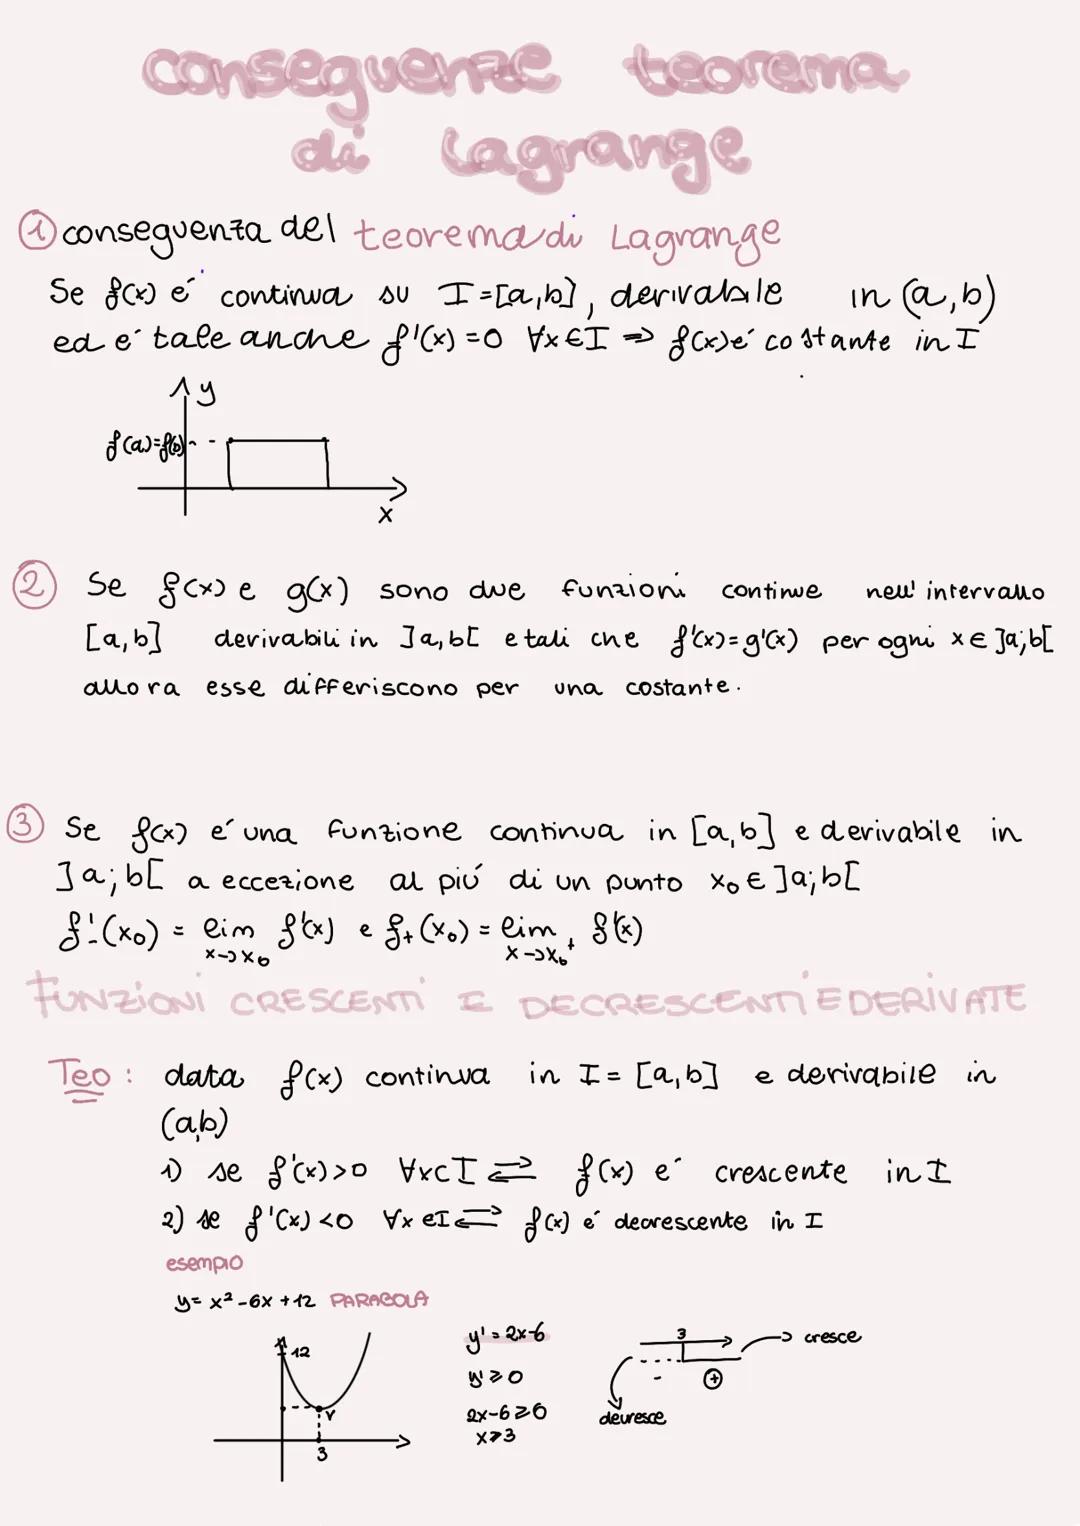 conseguenze teorema
di Lagrange
① conseguenza del teorema di Lagrange
Se f(x) é continua su I=[a,b], derivabile in (a,b)
ed é tale anche f'(x)=0 ∀x∈I ⇒ f(x)é costante in I
y
f(a)=f(b)
x
② Se f(x) e g(x) sono due funzioni continue nell'intervallo
[a,b] derivabili in ]a,b[ e tali che f'(x)=g'(x) per ogni x∈]a;b[
allora esse differiscono per una costante.
③ Se f(x) é una funzione continua in [a,b] e derivabile in
]a;b[ a eccezione al piú di un punto x₀∈]a;b[
f'₋(x₀) = lim f'(x) e f₊(x₀) = lim f'(x)
x→x₀ x→x₀⁺
FUNZIONI CRESCENTI E DECRESCENTI E DERIVATE
Teo: data f(x) continua in I=[a,b] e derivabile in
(a,b)
1) se f'(x)>0 ∀x⊂I ⇄ f(x) é crescente in I
2) se f'(x)<0 ∀x∈I ⇄ f(x) é decrescente in I
esempio
y=x²-6x+12 PARABOLA
12
V
3
y'=2x-6
y'≥0
2x-6≥0
x≥3
3
→ cresce
- +
decresce